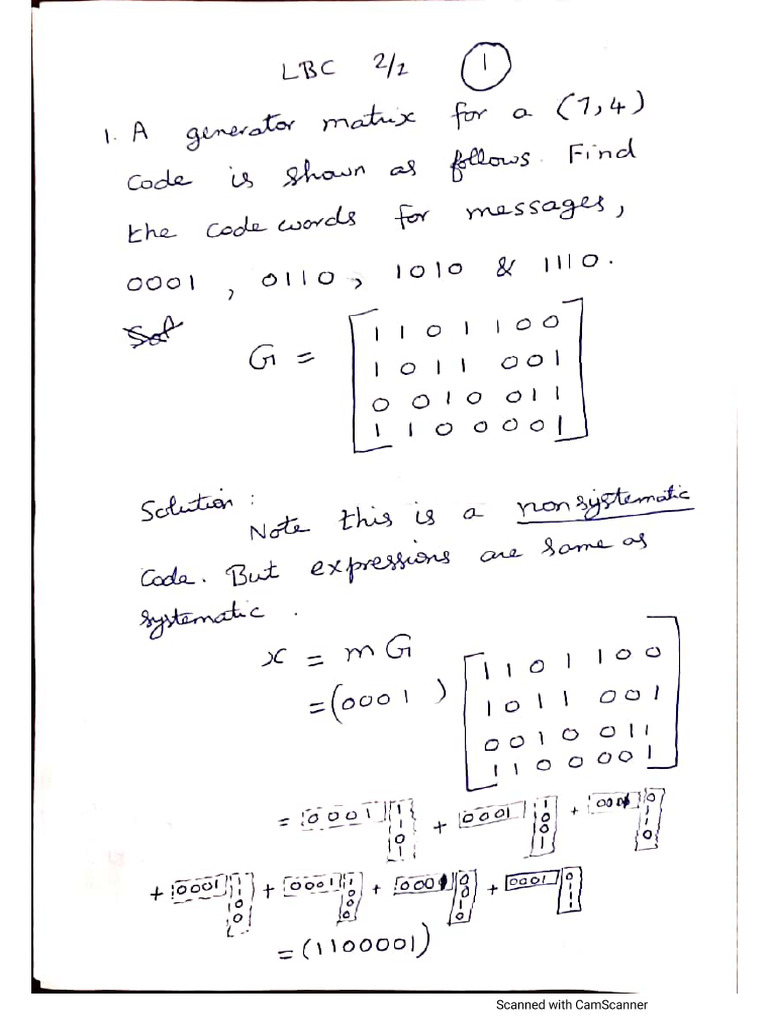 LBC 2/2 1
1. A generator matrix for a (7,4)
code is shown as follows. Find
the code words for messages,
0001, 0110, 1010 & 1110.
Sol
G = [ 1 1 0 1 1 0 0
1 0 1 1 0 0 1
0 0 1 0 0 1 1
1 1 0 0 0 0 1 ]
Solution:
Note this is a nonsystematic
code. But expressions are same as
systematic.
x = m G
= (0001) [ 1 1 0 1 1 0 0
1 0 1 1 0 0 1
0 0 1 0 0 1 1
1 1 0 0 0 0 1 ]
= [0001] [1 1 0 1] + [0001] [1 0 0 1] + [0001] [0 1 1 0]
+ [0001] [1 1 0 0] + [0001] [1 0 0 0] + [0001] [0 0 1 0] + [0001] [0 1 1 1]
= (1100001)
Scanned with CamScanner